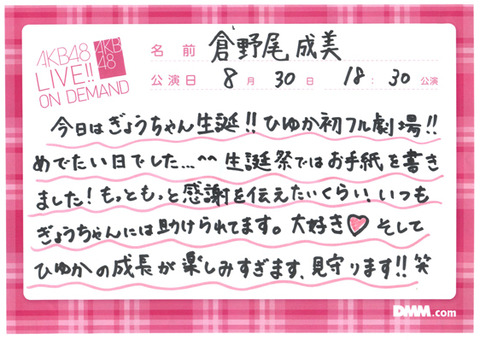 AKB48
LIVE!!
ON DEMAND
AKB
48
名前 倉野尾成美
公演日 8月30日 18:30公演
今日はぎょうちゃん生誕!!ひゆか初フル劇場!!
めでたい日でした...^^ 生誕祭ではお手紙を書き
ました!もっともっと感謝を伝えたいくらい!いつも
ぎょうちゃんには助けられてます。大好き♥そして
ひゆかの成長が楽しみすぎます、見守ります!!笑
DMM.com